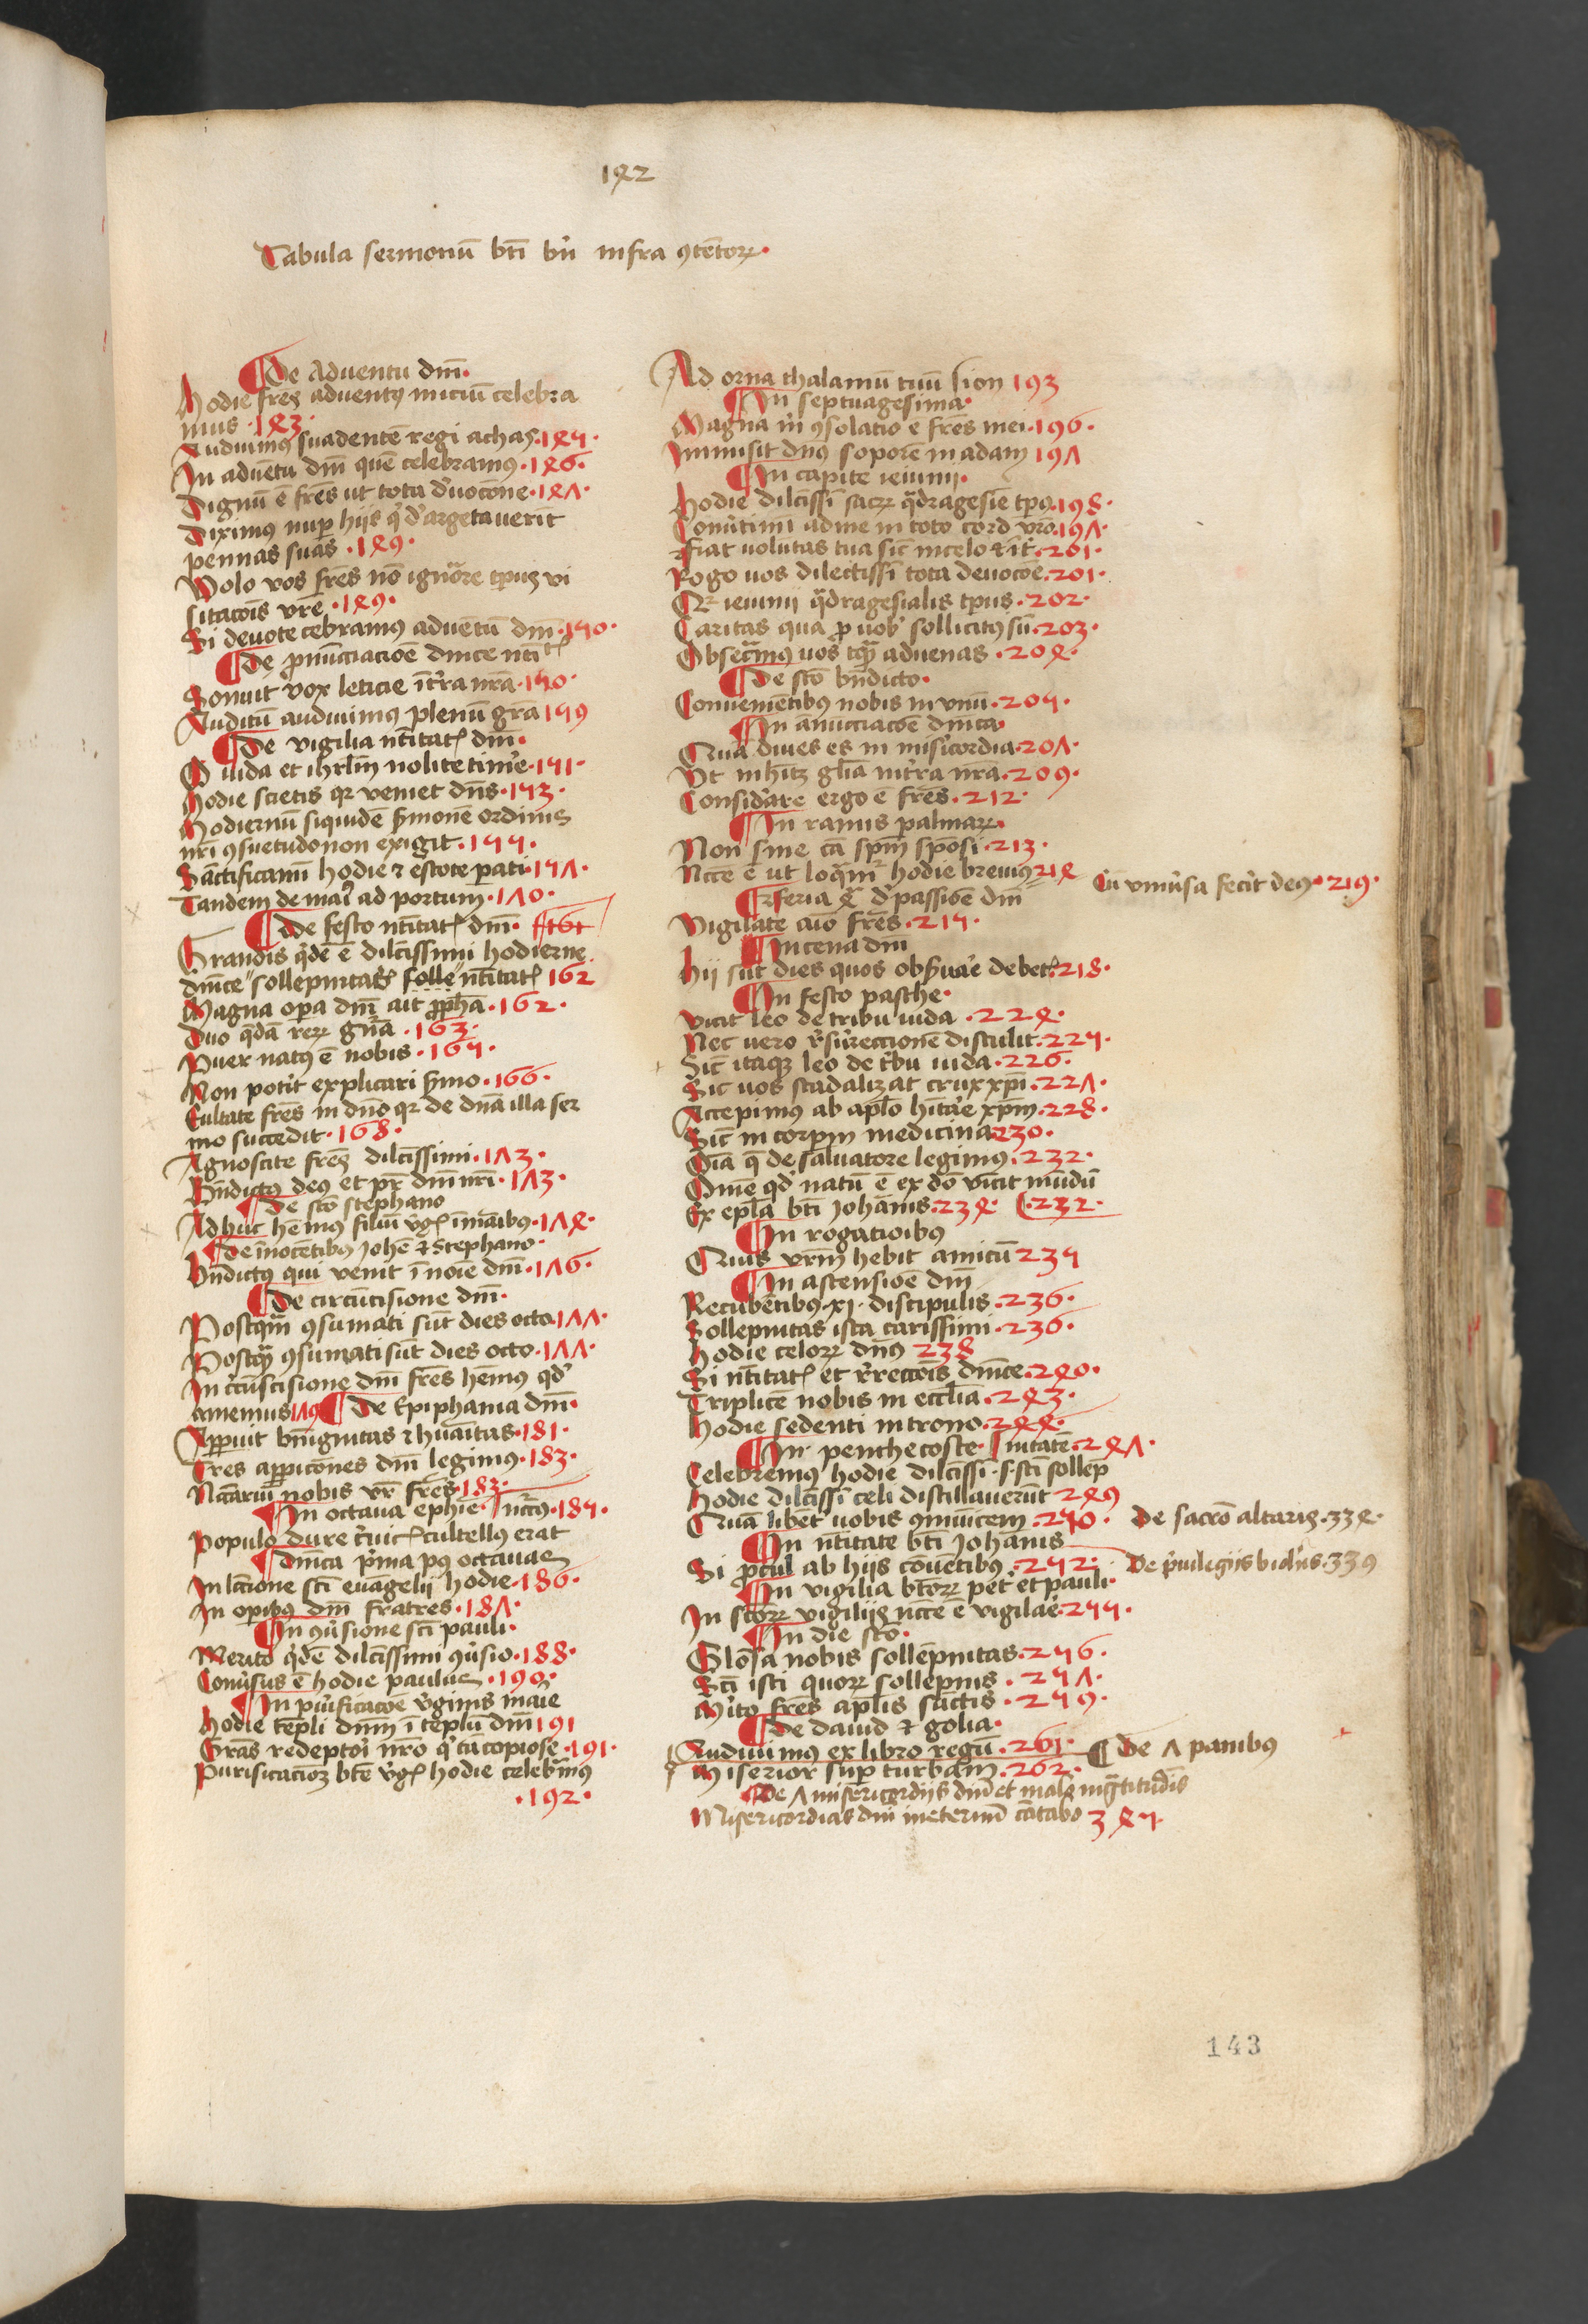 142
Tabula sermonū btī bn̄ infra ꝯtētoꝝ
¶De Aduentu dm̄.
Hodie fr̄es aduentꝰ iniciū celebra
mus .143.
Audiuimꝰ suadentē regi achaz .145.
In aduētu dn̄i quē celebramus .146.
Dignū ē fr̄es ut tota d'uocōne .147.
Diximꝰ nup̄ hijs q' d'argētauerīt
pennas suas .149.
Volo vos fr̄es nō ignōrare tp̄us vi
sitacōis vr̄e .149.
Si deuote cebramꝰ aduentū dm̄ .150.
¶De pn̄ūcciacioe dnīce nt̄
Sonuit vox leticie ī t'ra nr̄a .150.
Auditū audiuimus plenū grā 159
¶De vigilia nt̄itat' dm̄.
O iuda et ihrl̄m nolite time' .151.
Hodie scietis qꝛ veniet dn̄s .153.
Hodiernū siquidē s'monē ordinis
nr̄i ꝯsuetudo non exigit .155.
Sāctificamī hodie ⁊ estote parati .157.
Tandem de mari ad portum .170.
¶De festo nt̄itat' dm̄. 161
Grandis q'dē ē dilc̄issimi hodierne
dn̄ice sollepnitat' solle nt̄itat' 162
Magna opa dn̄i ait pph̄a .162.
Duo q̄dā reꝝ gn̄a .163.
Puer natꝰ ē nobis .165.
Non potīt explicari s'mo .166.
Eultate fr̄es in dn̄o qꝛ de dn̄a illa ser
mo succedit .168.
Agnoscite fr̄es dilc̄issimi .173.
Bn̄dictꝰ deꝰ et pr̄ dn̄i nr̄i .173.
¶De sc̄o stephano
Adhuc hēmus filiū v'g' ī manibus .174.
¶De īnocētibꝰ Johē ⁊ Stephano.
Bn̄dictꝰ qui venit ī noīe dm̄ .176.
¶De circūcisione dm̄.
Postqm̄ ꝯsumati sūt dies octo .177.
Postqꝫ ꝯsumati sūt dies octo .177.
In c'cūscisione dm̄ fr̄es hēmus qd'
amemus 179 ¶De Epiphania dm̄.
Apparuit bn̄ignitas ⁊ huāītas .181.
Tres apparicōnes dm̄ legimus .183.
Nc̄ariū nobis vr̄ fr̄es .183.
¶In octaua ephīe. nc̄cīꝰ .185.
Populo dure c'uic' cultellꝰ erat
¶Dn̄ica p'ma pꝰ octauas
In lc̄ione sc̄i euāgelij hodie .186.
In opibꝰ dn̄i fratres .187.
¶In ꝯu'sione sc̄i pauli.
Merito q'dē dilc̄issimi ꝯu'sio .188.
Conu'sus ē hodie paulus .190.
¶In pu'ificacōe v'ginis marie
Hodie tēpli dn̄m ī templū dm̄ 191
Grās redēptoi nr̄o q' tā copiose .191.
Purificacioꝫ bt̄e v'g' hodie celebramꝰ
.192.
Ad orna thalamū tuū sion 193
¶In septuagesima.
Magna m̄ ꝯsolatio ē fr̄es mei .196.
Immisit dn̄us soporē in adam 197
¶In capite ieiunij.
Hodie dilc̄issi sacꝝ q̄dragesie tp̄us .198.
Conu'timi ad me in toto cord' vr̄o .197.
Fiat uolūtas tua sic̄ in celo ⁊ ī t'. .201.
Rogo uos dilectissi tota deuocōe .201.
Qꝛ ieiunij q̄dragesialis tp̄us .202.
Caritas qua p uob' sollicitꝰ sū .203.
Obsecramꝰ uos tqꝫ aduenas .204.
¶De sc̄o bn̄dicto.
Conueniētibꝰ nobis in vnū .205.
¶In ānūcciacōe dn̄ica.
Quā diues es in mis'icordia .207.
Vt inhītꝫ gl̄ia in t'ra nr̄a .209.
Considāte ergo ē fr̄es .212.
¶In ramis palmaꝝ.
Non sine cā spm̄ sponsi .213.
Ncc̄e ē ut loq̄mr hodie breuius 214
Cū vniu'sa fecīt deꝰ .219.
¶Feria 4ᵃ d' passiōe dm̄
Vigilate aīo fr̄es .215.
¶In cena dm̄
Hij sūt dies quos obs'uare debet' .218.
¶In festo pasche.
Vicit leo de tribu iuda .224.
Nec uero r'surreccionē distulit .225.
Sic̄ itaqꝫ leo de t'bu iuda .226.
Sic uos scādalizat crux xp̄i .227.
Accepimꝰ ab aplō hītare xp̄m .228.
Sic̄ in corpm̄ medicina 230.
Oīa q̄ de saluatore legimus .232.
Om̄e qd' natū ē ex dō vincit mūdū
Ex epl̄a btī Johānis .234. (.232.
¶In rogatioibus
Quis vr̄m hebit amicū 235
¶In ascensiōe dm̄
Recūbētibꝰ .xj. discipulis .236.
Sollepnitas ista carissimi .236.
Hodie celoꝝ dn̄us 238
Si nt̄itat' et r'reccōis dn̄ice .240.
Triplicē nobis in eccl̄ia .243.
Hodie sedenti in trono .244.
¶In penthecoste. nitatē .247.
Celebremꝰ hodie dilc̄issi .s. sc̄i sollēp
Hodie dilc̄issi celi distillauerūt 249
Quā libēt' uobis ꝯmūicem .250.
De sacrō altaris .334.
¶In nt̄itate btī Johānis
Si p̄cul ab hijs conuētibꝰ .252.
De p'uilegijs vidīs .339
¶In vigilia bt̄oꝝ pet' et pauli.
In sc̄oꝝ vigilijs ncc̄e ē vigilae' .255.
¶In die sc̄o.
Glōsa nobis sollēpnitas .256.
Sc̄i isti quoꝝ sollēpnis .257.
M'ito fr̄es aplīs sāctis .259.
¶De dauid ⁊ golia.
Audiuimꝰ ex libro regū .261.
¶De 7 panibus
Miserior sup̄ turbam .262.
¶De 7 misericordijs dn̄i et
Misericordias dn̄i in eternū cātabo 345.
143